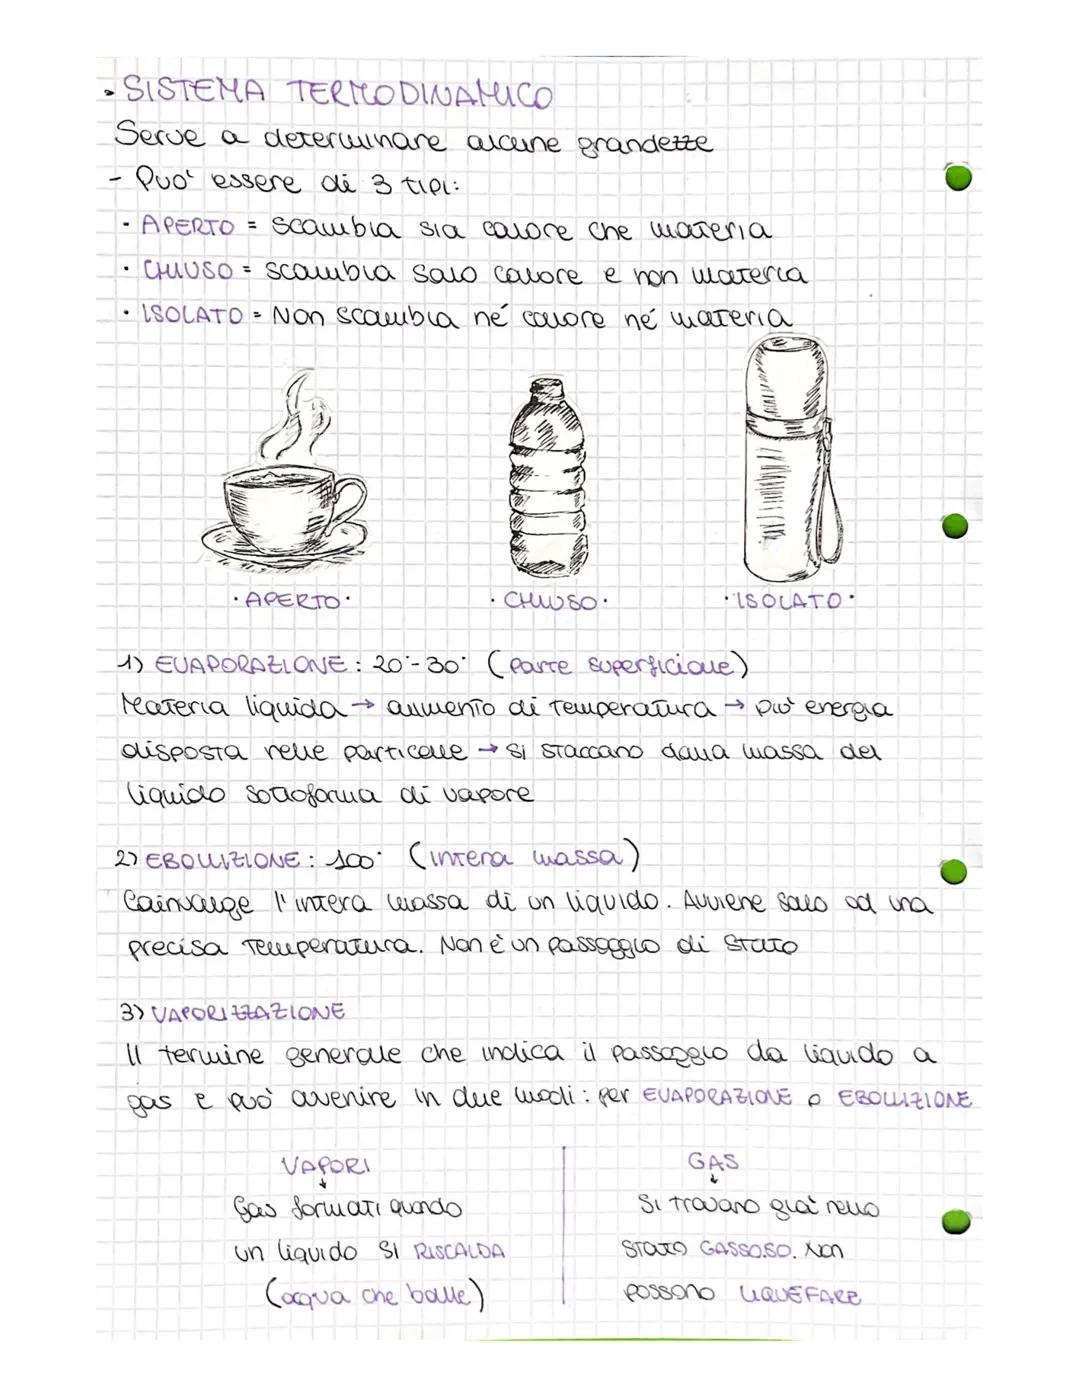 • SISTEMA TERMODINAMICO
Serve a determinare alcune grandezze
- Puo' essere di 3 tipi:
• APERTO = scambia sia calore che materia
• CHIUSO = scambia solo calore e non materia
• ISOLATO = Non scambia né calore né materia
• APERTO • • CHIUSO • • ISOLATO •
1) EVAPORAZIONE: 20°-30° (parte superficiale)
Materia liquida → aumento di temperatura → piu' energia
disposta nelle particelle → si staccano dalla massa del
liquido sottoforma di vapore
2) EBOLLIZIONE: 100° (intera massa)
Coinvolge l'intera massa di un liquido. Avviene solo ad una
precisa temperatura. Non è un passaggio di stato
3) VAPORIZZAZIONE
Il termine generale che indica il passaggio da liquido a
gas e può avvenire in due modi: per EVAPORAZIONE o EBOLLIZIONE
VAPORI
↓
Gas formati quando
un liquido si RISCALDA
(acqua che bolle)
GAS
↓
Si trovano gia' nello
stato GASSOSO. Non
possono LIQUEFARE